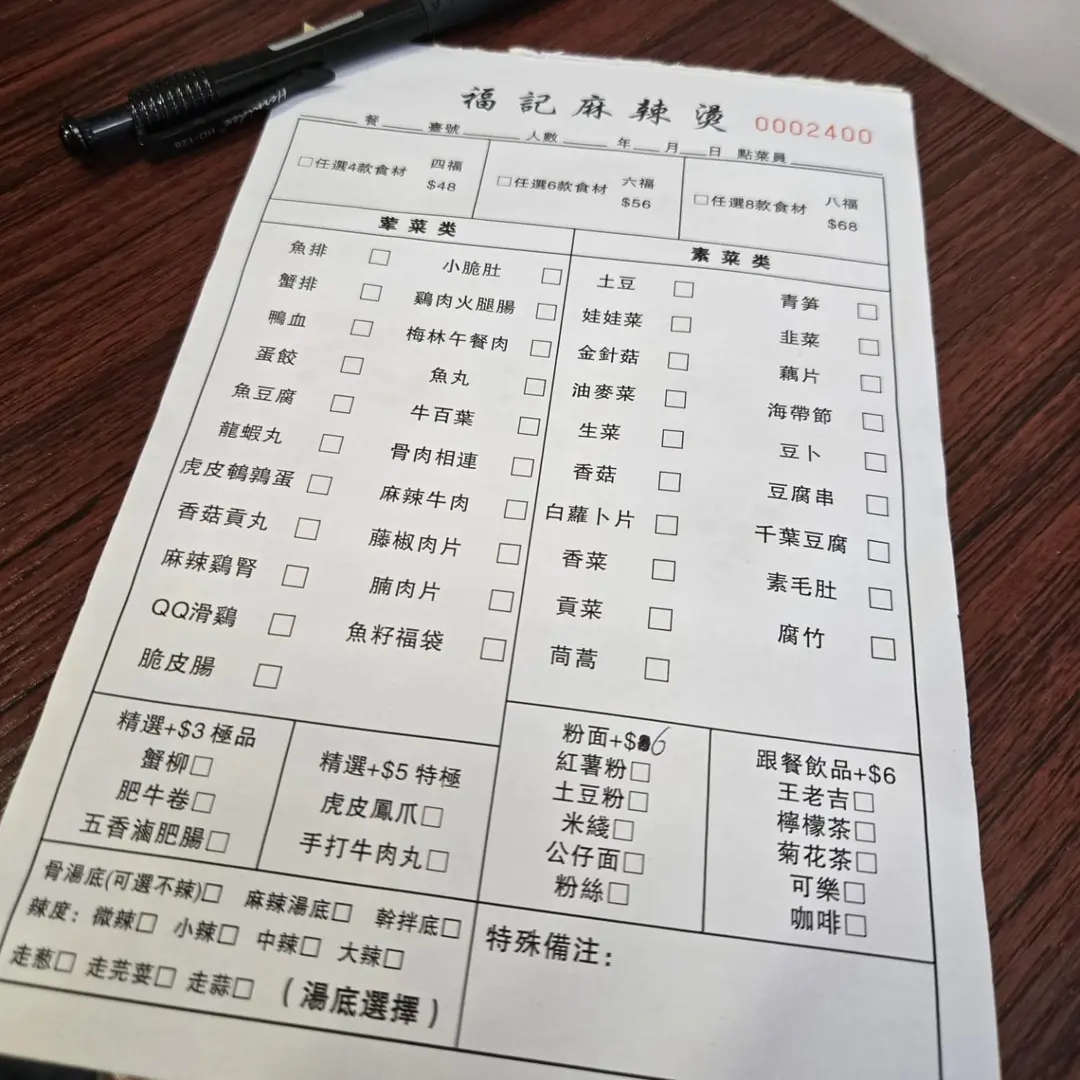 福記麻辣燙 0002400
餐 臺號 人數 年 月 日 點菜員
□任選4款食材 四福 $48
□任選6款食材 六福 $56
□任選8款食材 八福 $68
葷菜类
魚排□ 小脆肚□
蟹排□ 鷄肉火腿腸□
鴨血□ 梅林午餐肉□
蛋餃□ 魚丸□
魚豆腐□ 牛百葉□
龍蝦丸□ 骨肉相連□
虎皮鵪鶉蛋□ 麻辣牛肉□
香菇貢丸□ 藤椒肉片□
麻辣鷄腎□ 腩肉片□
QQ滑鷄□ 魚籽福袋□
脆皮腸□
素菜类
土豆□ 青笋□
娃娃菜□ 韭菜□
金針菇□ 藕片□
油麥菜□ 海帶節□
生菜□ 豆卜□
香菇□ 豆腐串□
白蘿卜片□ 千葉豆腐□
香菜□ 素毛肚□
貢菜□ 腐竹□
茼蒿□
精選+$3極品
蟹柳□
肥牛卷□
五香滷肥腸□
精選+$5特極
虎皮鳳爪□
手打牛肉丸□
粉面+$6
紅薯粉□
土豆粉□
米綫□
公仔面□
粉絲□
跟餐飲品+$6
王老吉□
檸檬茶□
菊花茶□
可樂□
咖啡□
骨湯底(可選不辣)□ 麻辣湯底□ 幹拌底□
辣度：微辣□ 小辣□ 中辣□ 大辣□
走葱□ 走芫荽□ 走蒜□ (湯底選擇)
特殊備注：